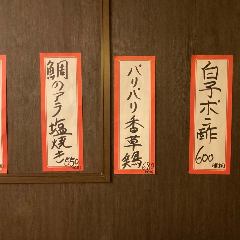 白子ポン酢
600
パリパリ香草鶏
680
鯛のアラ塩焼き
550